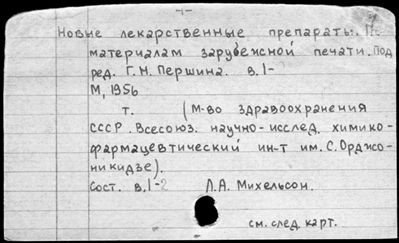 Новые лекарственные препараты.
материалам зарубежной печати. Под
ред. Г.Н. Першина. в.1-
М, 1956
т. (М-во здравоохранения
СССР. Всесоюз. научно-исслед. химико-
фармацевтический ин-т им. С. Орджо-
никидзе).
Сост. в.1-2 Л.А. Михельсон.
см. след. карт.